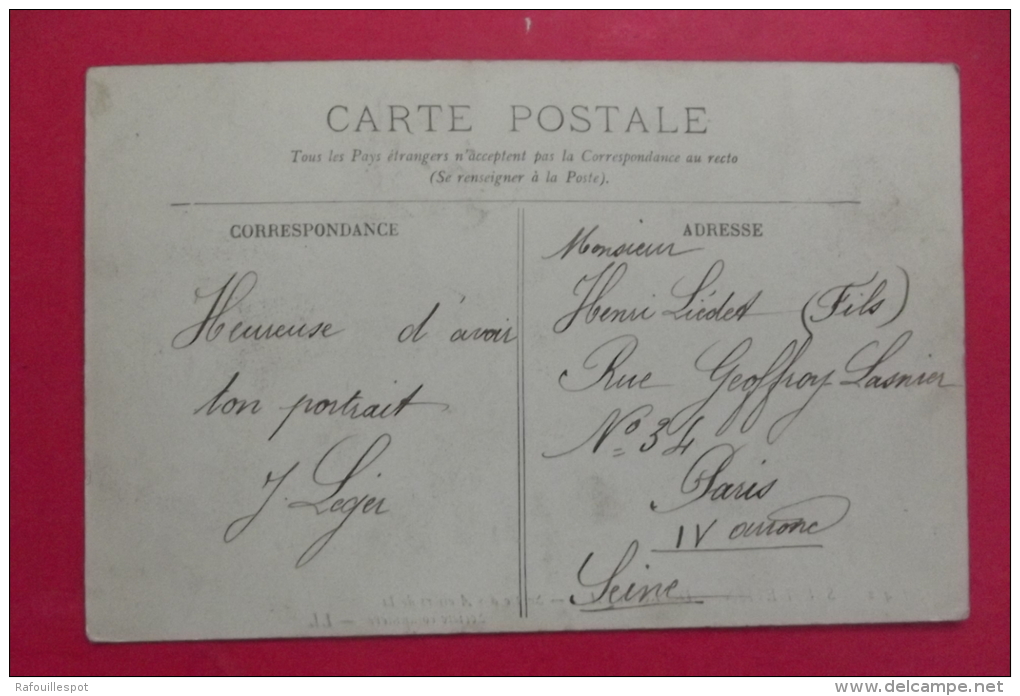 CARTE POSTALE
Tous les Pays étrangers n'acceptent pas la Correspondance au recto
(Se renseigner à la Poste).
CORRESPONDANCE
Heureuse d'avoir
ton portrait
J. Léger
ADRESSE
Monsieur
Henri Liédet (Fils)
Rue Geoffroy Lasnier
No 34
Paris
IV arronc
Seine
Rafouillespot
www.delcampe.net